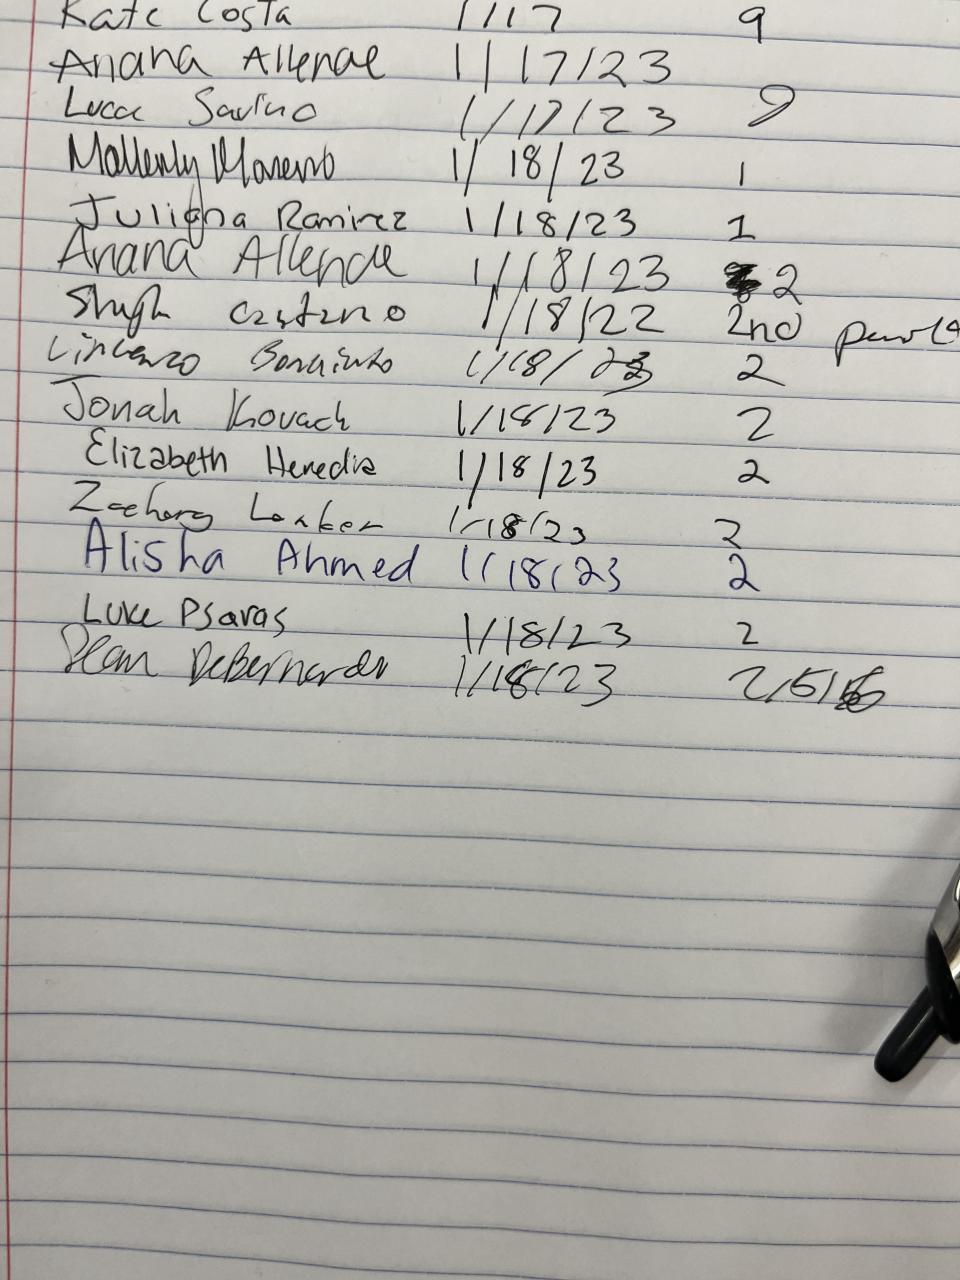 Kate Costa 1/17 9
Anana Allende 1/17/23
Lucca Savino 1/17/23 9
Moreno 1/18/23 1
Juliana Ramirez 1/18/23 1
Anana Allende 1/18/23 2
1/18/22 2nd
Vincenzo 1/18/23 2
Jonah Kovach 1/18/23 2
Elizabeth Heredia 1/18/23 2
Zachary 1/18/23 2
Alisha Ahmed 1/18/23 2
Luke Psaras 1/18/23 2
DeBernardo 1/18/23 2/5/6